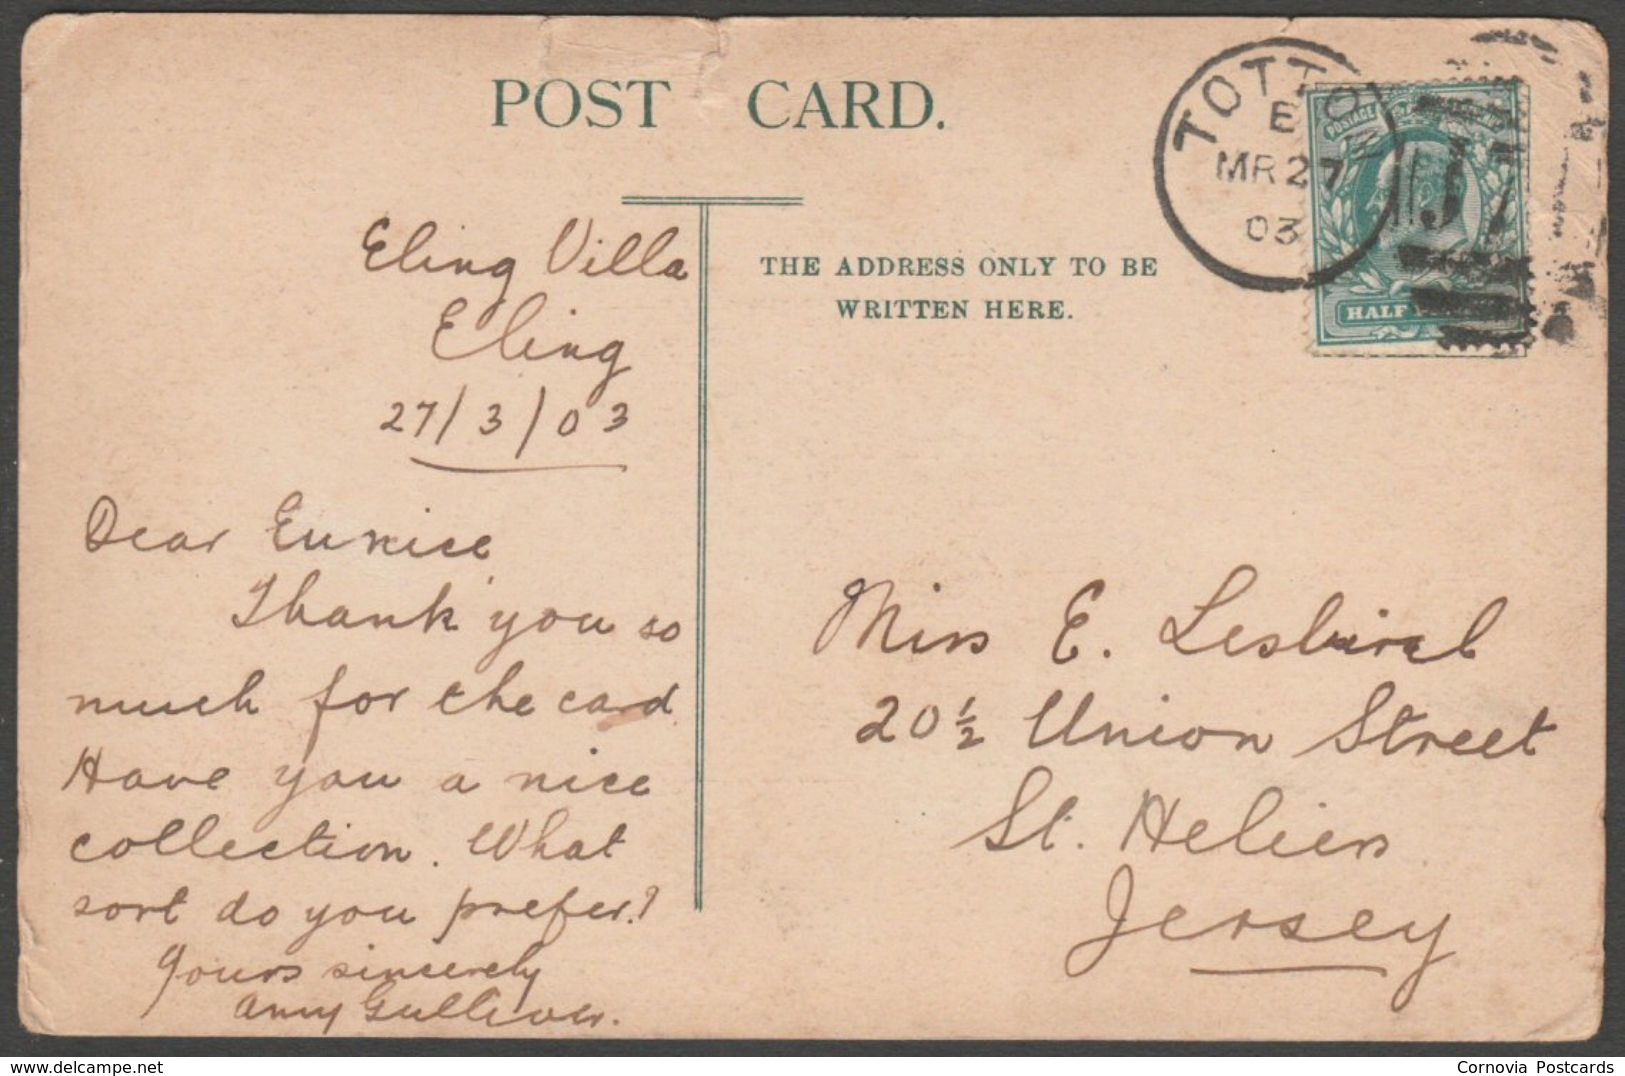 POST CARD.
TOTTO
E
MR 27
03
POSTAGE
HALF
J7
THE ADDRESS ONLY TO BE
WRITTEN HERE.
Eling Villa
Eling
27/3/03
Dear Eunice,
Thank you so
much for the card.
Have you a nice
collection. What
sort do you prefer?
Yours sincerely
Amy Gulliver.
Miss E. Lesbirel
20½ Union Street
St. Heliers
Jersey
Cornovia Postcards